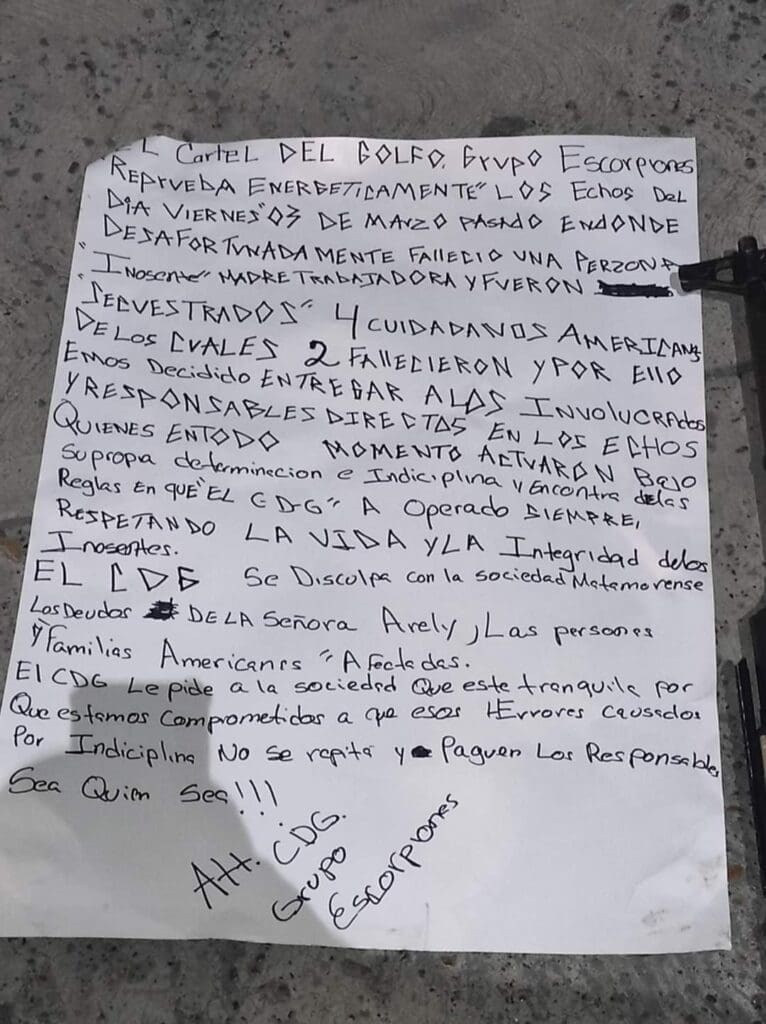 EL Cartel DEL GOLFO. Grupo Escorpiones
REPrUEBA ENERGETICAMENTE" LOS Echos DEL
DIA VIERNES "03 DE MARZO PASADO ENDONDE
DESAFORTUNADAMENTE FALLECIO UNA PERZONA
"INOSENTE" MADRE TRABAJADORA Y FUERON
"SECUESTRADOS" 4 CUIDADANOS AMERICANS
DE LOS CUALES 2 FALLECIERON Y POR ELLO
EMOS DECIDIDO ENTREGAR A LOS INVOLUCRADOS
Y RESPONSABLES DIRECTOS EN LOS ECHOS
QUIENES ENTODO MOMENTO ACTUARON BAJO
su propa determinecion e Indiciplina y Encontra delas
Reglas En QUE "EL CDG" A Operado SIEMPRE,
RESPETANDO LA VIDA Y LA Integridad delos
Inosentes.
EL CDG Se Disculpa con la sociedad Matamorense
Los Deudos DE LA Señora Arely, Las persones
Y Familias Americanes "Afectadas.
El CDG Le pide a la sociedad Que este tranquila por
Que estamos comprometidos a que esos Errores causados
Por Indiciplina No se repita y Paguen Los Responsables,
Sea Quien Sea!!!
Att. CDG.
Grupo
Escorpiones